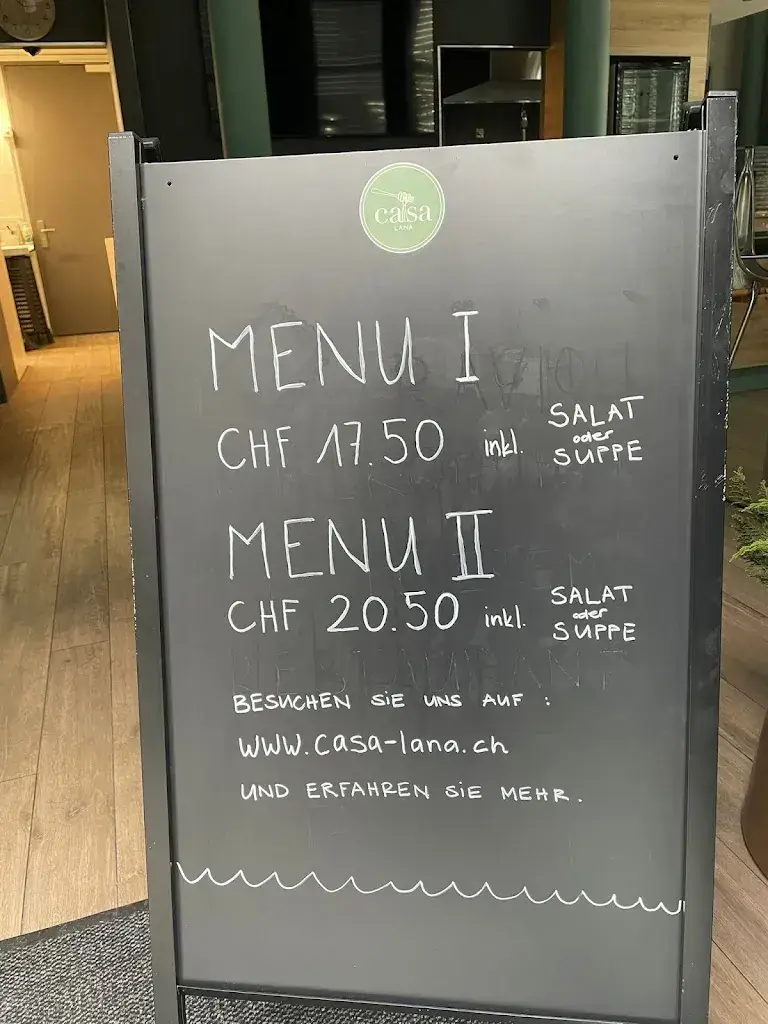 casa
LANA
MENU I
CHF 17.50 inkl. SALAT oder SUPPE
MENU II
CHF 20.50 inkl. SALAT oder SUPPE
BESUCHEN SiE UNS AUF :
www.casa-lana.ch
UND ERFAHREN SiE MEHR.